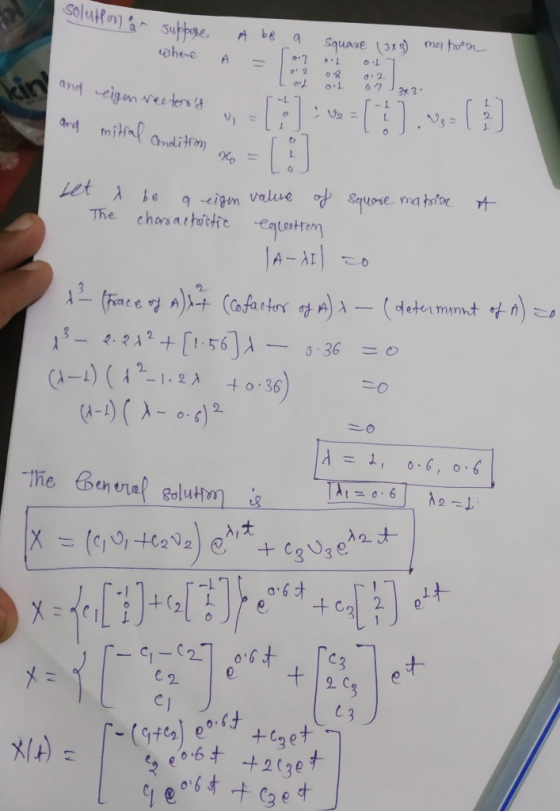 Solution:- Suppose A be a square (3×3) matrix
where A = [0.7 0.1 0.1; 0.2 0.8 0.2; 0.1 0.1 0.7]3×3.
and eigen vector's v1 = [-1; 0; 1] ; v2 = [-1; 1; 0] . v3 = [1; 2; 1]
and initial condition x0 = [0; 1; 0]
Let λ be a eigen value of square matrix A
The charactristic equation
|A-λI| = 0
λ³ - (Trace of A)λ² + (Cofactor of A)λ - (determinnt of A) = 0
λ³ - 2.2λ² + [1.56]λ - 0.36 = 0
(λ-1)(λ² - 1.2λ + 0.36) = 0
(λ-1)(λ - 0.6)² = 0
λ = 1, 0.6, 0.6
λ1 = 0.6 λ2 = 1.
The General solution is
X = (c1v1 + c2v2) e^λ1t + c3v3e^λ2t
X = {c1[-1; 0; 1] + c2[-1; 1; 0]} e^0.6t + c3[1; 2; 1] e^1t
X = { [-c1-c2; c2; c1] e^0.6t + [c3; 2c3; c3] e^t
X(t) = [-(c1+c2) e^0.6t + c3e^t; c2 e^0.6t + 2c3e^t; c1 e^0.6t + c3e^t]